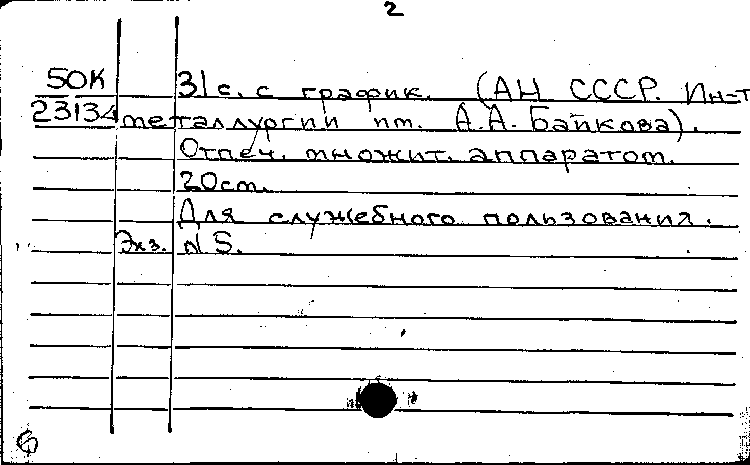 2
50К 31 с. с график. (АН СССР. Ин-т
23134 металлургии им. А.А. Байкова).
Отпеч. множит. аппаратом.
20 см.
Для служебного пользования.
Экз. N 5.